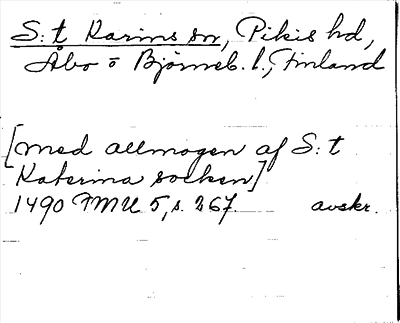 S:t Karins sn, Pikis hd,
Åbo o Björneb. l., Finland
[med allmogen af S:t
Katerina socken]
1490 FMU 5, s. 267. avskr.